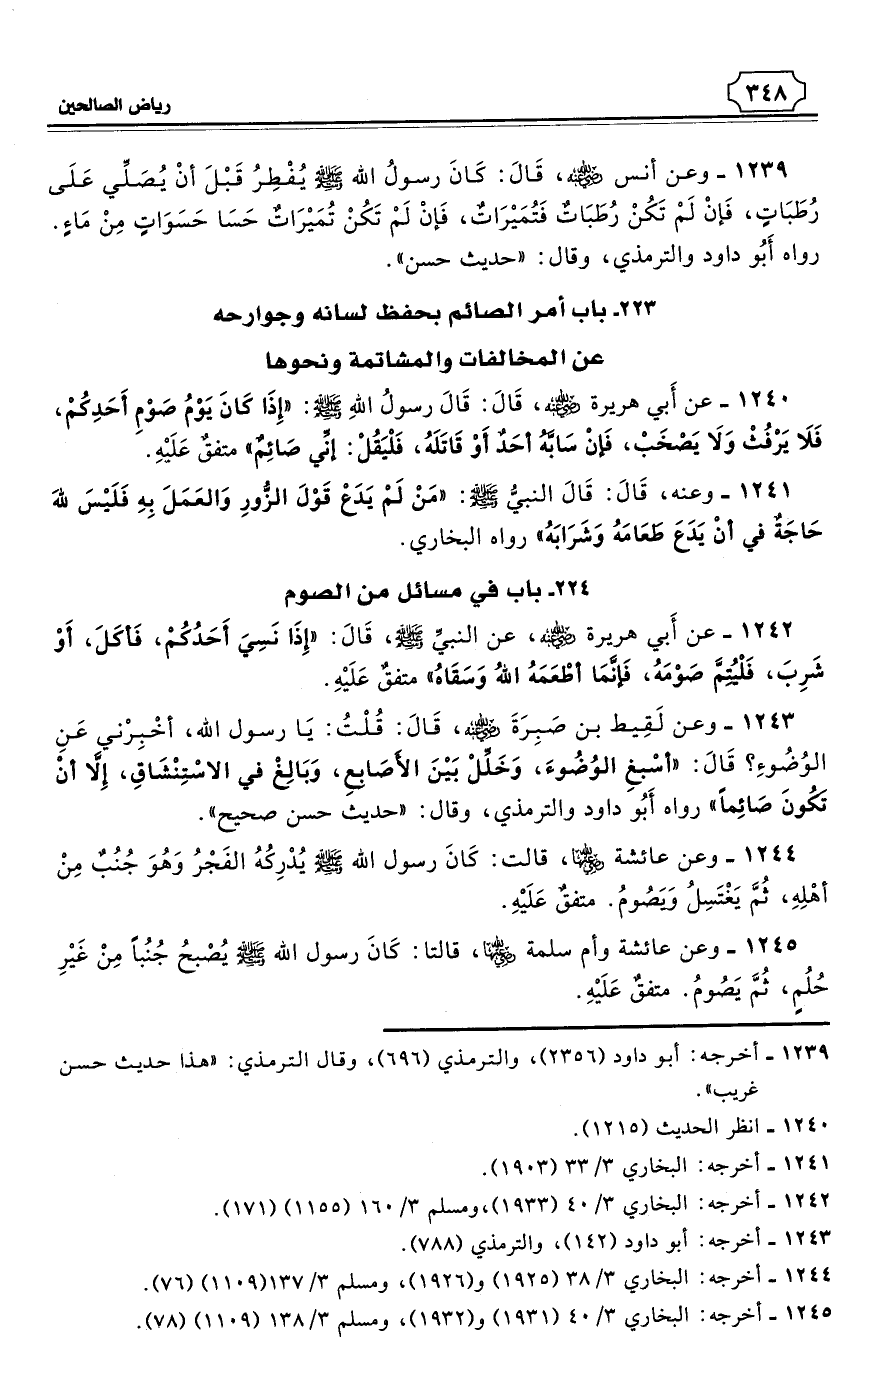 ٣٤٨
رياض الصالحين
١٢٣٩ ـ وعن أنس رضي الله عنه، قَالَ: كَانَ رسولُ الله ﷺ يُفْطِرُ قَبْلَ أنْ يُصَلِّي عَلَى
رُطَبَاتٍ، فَإنْ لَمْ تَكُنْ رُطَبَاتٌ فَتُمَيْرَاتٌ، فَإنْ لَمْ تَكُنْ تُمَيْرَاتٌ حَسَا حَسَوَاتٍ مِنْ مَاءٍ.
رواه أَبُو داود والترمذي، وقال: «حديث حسن».
٢٢٣ـ باب أمر الصائم بحفظ لسانه وجوارحه
عن المخالفات والمشاتمة ونحوها
١٢٤٠ ـ عن أَبي هريرة رضي الله عنه، قَالَ: قَالَ رسولُ اللهِ ﷺ: «إِذَا كَانَ يَوْمُ صَوْمِ أحَدِكُمْ،
فَلَا يَرْفُثْ وَلَا يَصْخَبْ، فَإنْ سَابَّهُ أحَدٌ أَوْ قَاتَلَهُ، فَلْيَقُلْ: إنِّي صَائِمٌ» متفقٌ عَلَيْهِ.
١٢٤١ ـ وعنه، قَالَ: قَالَ النبيُّ ﷺ: «مَنْ لَمْ يَدَعْ قَوْلَ الزُّورِ وَالعَمَلَ بِهِ فَلَيْسَ للهِ
حَاجَةٌ في أنْ يَدَعَ طَعَامَهُ وَشَرَابَهُ» رواه البخاري.
٢٢٤ـ باب في مسائل من الصوم
١٢٤٢ ـ عن أَبي هريرة رضي الله عنه، عن النبيِّ ﷺ، قَالَ: «إِذَا نَسِيَ أَحَدُكُمْ، فَأكَلَ، أَوْ
شَرِبَ، فَلْيُتِمَّ صَوْمَهُ، فَإنَّمَا أطْعَمَهُ اللهُ وَسَقَاهُ» متفقٌ عَلَيْهِ.
١٢٤٣ ـ وعن لَقِيط بن صَبِرَةَ رضي الله عنه، قَالَ: قُلْتُ: يَا رسول الله، أخْبِرْني عَنِ
الوُضُوءِ؟ قَالَ: «أسْبِغِ الوُضُوءَ، وَخَلِّلْ بَيْنَ الأَصَابِعِ، وَبَالِغْ في الاسْتِنْشَاقِ، إِلَّا أنْ
تَكُونَ صَائِماً» رواه أَبُو داود والترمذي، وقال: «حديث حسن صحيح».
١٢٤٤ ـ وعن عائشة رضي الله عنها، قالت: كَانَ رسول الله ﷺ يُدْرِكُهُ الفَجْرُ وَهُوَ جُنُبٌ مِنْ
أهْلِهِ، ثُمَّ يَغْتَسِلُ وَيَصُومُ. متفقٌ عَلَيْهِ.
١٢٤٥ ـ وعن عائشة وأم سلمة رضي الله عنهما، قالتا: كَانَ رسول الله ﷺ يُصْبحُ جُنُباً مِنْ غَيْرِ
حُلُمٍ، ثُمَّ يَصُومُ. متفقٌ عَلَيْهِ.
١٢٣٩ ـ أخرجه: أبو داود (٢٣٥٦)، والترمذي (٦٩٦)، وقال الترمذي: «هذا حديث حسن
غريب».
١٢٤٠ ـ انظر الحديث (١٢١٥).
١٢٤١ ـ أخرجه: البخاري ٣/ ٣٣ (١٩٠٣).
١٢٤٢ ـ أخرجه: البخاري ٣/ ٤٠ (١٩٣٣)،ومسلم ٣/ ١٦٠ (١١٥٥) (١٧١).
١٢٤٣ ـ أخرجه: أبو داود (١٤٢)، والترمذي (٧٨٨).
١٢٤٤ ـ أخرجه: البخاري ٣/ ٣٨ (١٩٢٥) و(١٩٢٦)، ومسلم ٣/ ١٣٧(١١٠٩) (٧٦).
١٢٤٥ ـ أخرجه: البخاري ٣/ ٤٠ (١٩٣١) و(١٩٣٢)، ومسلم ٣/ ١٣٨ (١١٠٩) (٧٨).